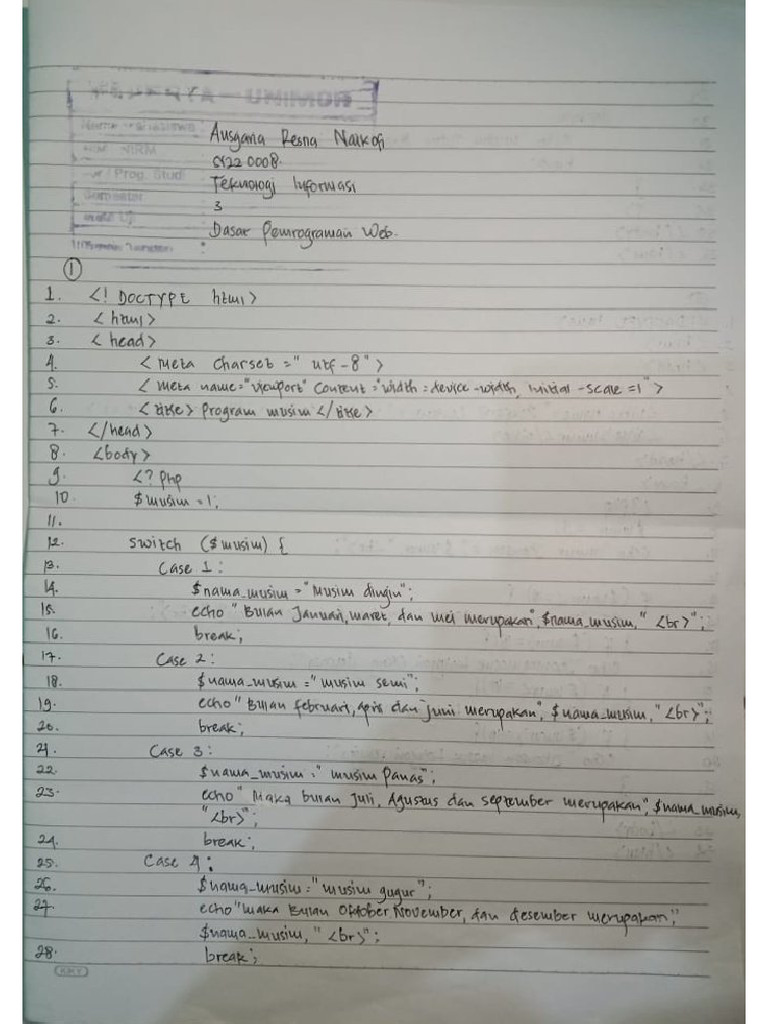 UNIMOR
Ausgana Resna Naikofi
Teknologi Informasi
3
Dasar Pemrograman Web.
①
1. <! DOCTYPE html>
2. <html>
3. <head>
4. <meta charset="utf-8">
5. <meta name="viewport" content="width=device-width, initial-scale=1">
6. <title> program musim </title>
7. </head>
8. <body>
9. <?php
10. $musim =1;
11.
12. switch ($musim) {
13. Case 1:
14. $nama_musim = "Musim dingin";
15. echo "Bulan Januari, maret, dan mei merupakan", $nama_musim, "<br>";
16. break;
17. Case 2:
18. $nama_musim = "musim semi";
19. echo "Bulan februari, april dan juni merupakan", $nama_musim, "<br>";
20. break;
21. Case 3:
22. $nama_musim = "musim panas";
23. echo "Maka bulan Juli, Agustus dan september merupakan", $nama_musim,
"<br>";
24. break;
25. Case 4:
26. $nama_musim = "musim gugur";
27. echo "maka Bulan Oktober, November, dan desember merupakan",
$nama_musim, "<br>";
28. break;
KKY